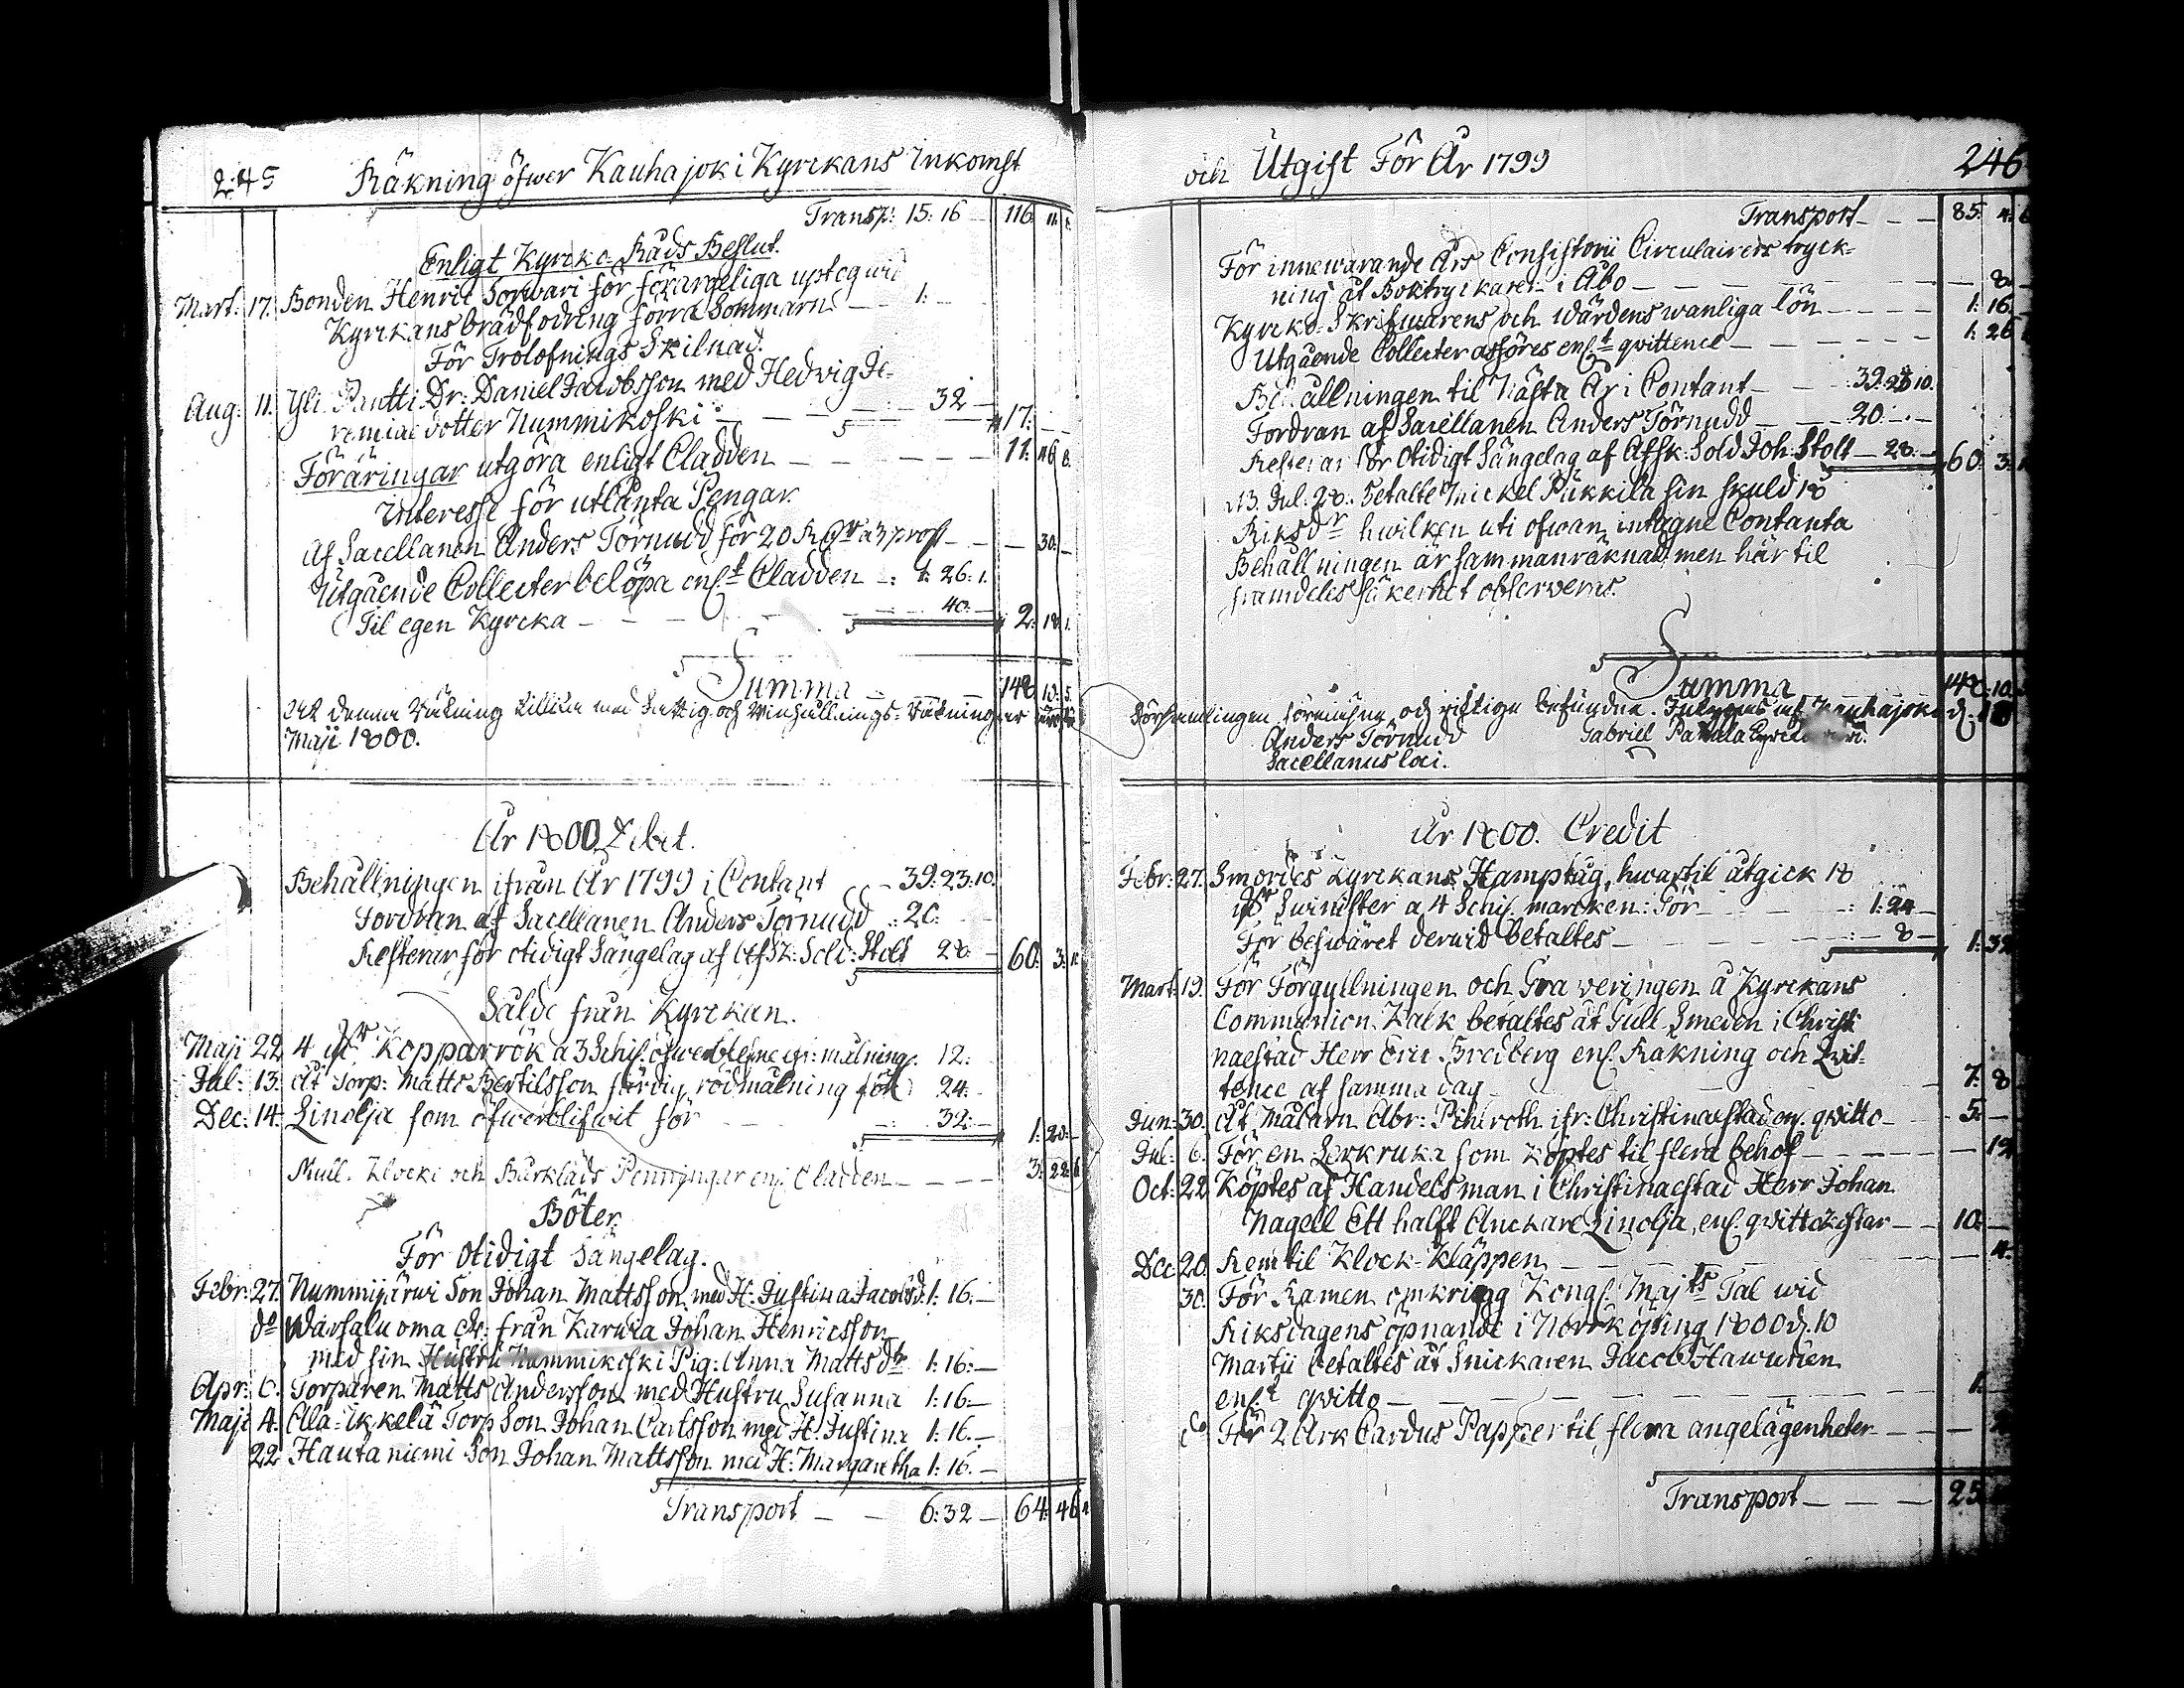 245 Räkning öfwer Kauhajoki Kyrckans Inkomst
Transp: 15: 16 — 116 11
Enligt Kyrcko-Råds Beslut.
Mart: 17. Bonden Henric Sorvari för förargeliga uptog wid
Kyrckans brädfodring förra Sommarn — 1: —
För Trolofnings Skilnad.
Aug: 11. Yli Pantti Dr: Daniel Jacobsson med Hedvig Je-
remiae dotter Nummikoski — 32 — 17: —
Föräringar utgöra enligt Cladden — 11. 46
Interesse för utlånta Pengar.
Af Sacellanen Anders Törnudd för 20 R a 3 pro — 30. —
Utgående Collecter belöpa enl.t Cladden — 1. 26. 1.
Til egen Kyrcka — 40. — 2. 18. 1.
Summa — 148 10. 5.
At denna Räkning med och
Maji 1800.
År 1800 Debet.
Behållningen ifrån År 1799 i Contant — 39: 23: 10.
Fordran af Sacellanen Anders Törnudd .: 20:
Resterar för otidigt Sängelag af Afsk: Sold: Stolt 28. — 60. 3.
Sålde från Kyrckan.
Maji 22 4 Kopparrök a 3 Schil. öfwerblefne målning. 12:
Jul: 13. åt Torp: Matts Bertilsson färdig rödmålning för 24.
Dec: 14. Linolja som öfwerblifwit för 32: — 1. 20. —
Mull. Klocki och Bårkläds Penningar enl. Cladden — 3. 22.
Böter.
För Otidigt Sängelag.
Febr: 27. Nummijärwi Son Johan Mattsson med H: Justina Jacobsd. 1: 16. —
do Wärsaluoma dr: från Karvia Johan Henricsson
med sin Hustru Nummikoski Pig: Anna Mattsdr 1: 16: —
Apr: Torparen Matts Andersson med Hustru Susanna 1: 16. —
Maji 4. Ala-Ikkelä Torp Son Johan Carlsson med H: Justina 1: 16. —
22 Hautaniemi Son Johan Mattsson med H: Margaretha 1: 16. —
Transport — — 6: 32 — 64: 46
och Utgift För År 1799 246
Transport — — — 85: 4:
För innewarande Års Consistorii Circulairers tryck-
ning åt Boktryckaren i Åbo — 8.
Kyrcko-Skrifwarens och wärdens wanliga lön — 1: 16.
Utgående Collecter afföres enl.t qvittence — 1: 26
Behållningen til Nästa År i Contant — 39: 23 10.
Fordran af Sacellanen Anders Törnudd — 20. —
Resterar för Otidigt Sängelag af Afsk: Sold Joh: Stolt — 28. 60: 3:
NB. Jul: 28. betalte Mickel Pukkila sin skuld 18
Riksdr hwilken uti ofwan intagne Contanta
Behållningen är sammanräknad, men här til
framdeles säkerhet observeras.
Summa 148: 10.
Församlingen och riktiga befundna. Kauhajoki d. 18
Anders Törnudd Gabriel
Sacellanus loci.
År 1800. Credit
Febr: 27. Smordes Kyrckans Hamptåg, hwartil åtgick 18
Swinister a 4 Schil. marcken: Gör — 1: 24 —
För beswäret derwid betaltes — 8 — 1: 32
Mart. 19. För Förgyllningen och Graveringen å Kyrckans
Communion Kalk betaltes åt Gull Smeden i Christi
naestad Herr Eric Bredberg enl. Räkning och Qvit-
tence af samma dag — 7. 8
Jun: 30. åt Målarn Abr: ifr: Christinaestad enl. qvitto — 5: —
Jul: 6. För en Lerkruka som köptes til flera behof — 12
Oct: 22 Köptes af Handelsman i Christinaestad Herr Johan
Nagell Ett halft Anckare Linolja, enl. qvitto kostar — 10. —
Dec 20. Rem til Klock-Kläppen — 4.
30. För Ramen omkring Kongl: Maj:ts Tal wid
Riksdagens öpnande i Norrköping 1800 d. 10
Martii betaltes åt Snickaren Jacob Hawunen
enl.t qvitto — 1.
do För 2 Ark Cardus Papper til flera angelägenheter —
Transport — — — 25